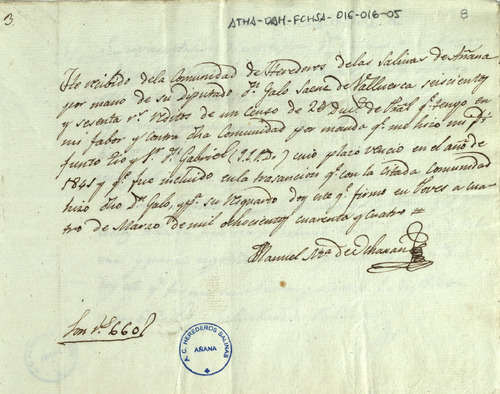 3.
ATHA-DAH-FCHSA-016-016-05
8
He recibido dela Comunidad de Herederos de las Salinas de Añana,
por mano de su Diputado Dn. Galo Saenz de Valluerca seiscientos
y sesenta rs. Reditos de un Censo de 20 Ducds. de Pral. qe. tengo en
mi fabor y contra dha Comunidad por manda qe. me hizo mi di
funto tio y Sr. Dn. Gabriel (Q.E.P.D.) cuio plazo vencio en el año de
1841 y qe. fue incluido enla trasancion qe. con la citada comunidad
hizo dho Dn. Galo, y pa. su resguardo doy este qe. firmo en Poves a cua
tro de Marzo de mil ochocientos cuarenta y cuatro #
Manuel Ma. de
Son rs. 660
A. C. HEREDEROS SALINAS
AÑANA